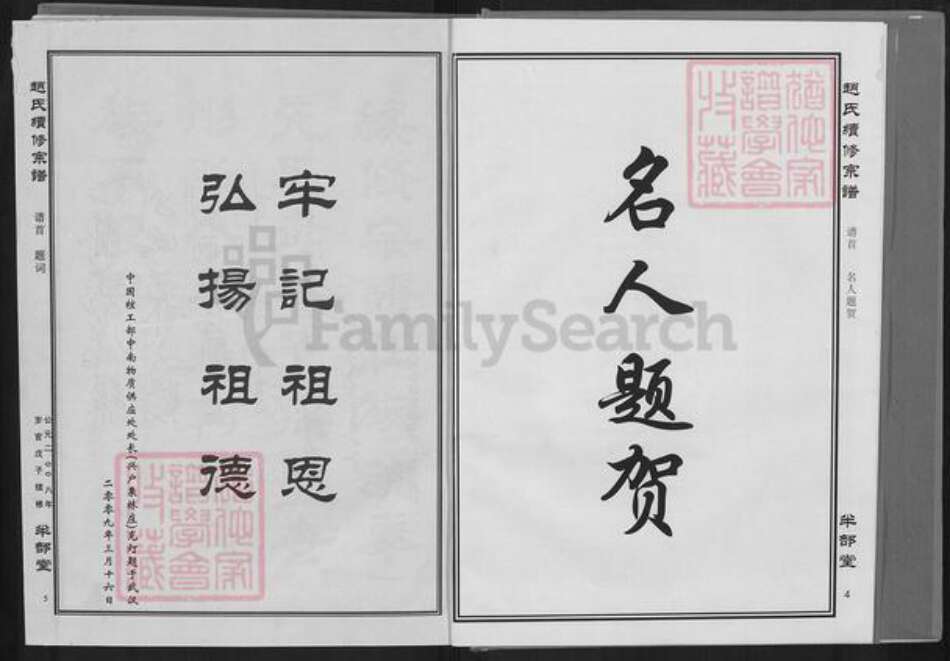 趙氏續修宗譜
谱首
名人题贺
半部堂
4
名人题贺
猶他家
譜學會
收藏
FamilySearch
牢記祖恩
弘揚祖德
中国核工部中南物质供应处处长(兴户象林庄)克灯题于武汉
二零零九年三月十六日
趙氏續修宗譜
谱首
题词
公元二〇〇八年
岁官戊子续修
半部堂
5
猶他家
譜學會
收藏